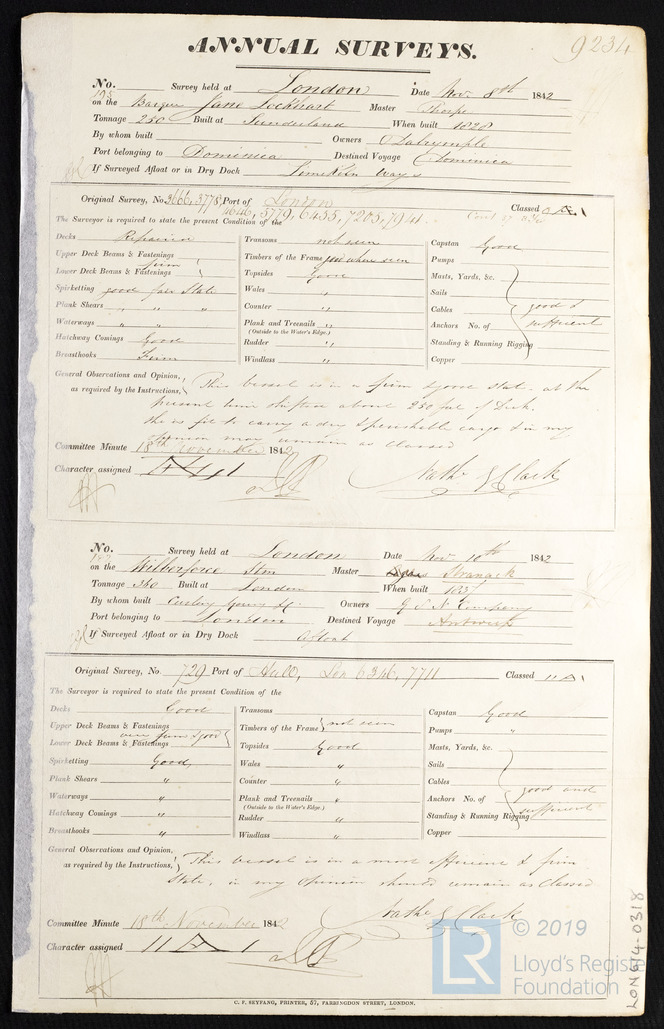 ANNUAL SURVEYS.
9234
No. Survey held at London Date Nov. 8th 1842
on the Barque Jane Lockhart Master Thorpe
Tonnage 250 Built at Sunderland When built 1828
By whom built Owners Dalrymple
Port belonging to Dominica Destined Voyage Dominica
If Surveyed Afloat or in Dry Dock Limekiln Ways
Original Survey, No. 3666, 3778, Port of London Classed
4646, 5779, 6455, 7205, 7941
The Surveyor is required to state the present Condition of the
Decks Repaired Transoms not seen Capstan Good
Upper Deck Beams & Fastenings firm Timbers of the Frame good where seen Pumps
Lower Deck Beams & Fastenings Topsides Good Masts, Yards, &c.
Spirketting good fair State Wales " Sails
Plank Shears " " " Counter " Cables good &
Waterways " " Plank and Treenails " Anchors No. of sufficient
(Outside to the Water's Edge.)
Hatchway Comings Good Rudder " Standing & Running Rigging
Breasthooks Firm Windlass " Copper
General Observations and Opinion, This vessel is in a firm & good state. at the
as required by the Instructions, present time shifting about 250 feet of Deck.
She is fit to carry a dry & perishable cargo & in my
opinion may remain as classed
Committee Minute 18th November 1842
Character assigned
Nathl G Clark
No. Survey held at London Date Nov. 10th 1842
on the Wilberforce Stm Master Stranack
Tonnage 360 Built at London When built 1837
By whom built Curling Young & Co. Owners G S N Company
Port belonging to London Destined Voyage Antwerp
If Surveyed Afloat or in Dry Dock Afloat
Original Survey, No. 729 Port of Hull, Lon 6346, 7711 Classed
The Surveyor is required to state the present Condition of the
Decks Good Transoms Capstan Good
Upper Deck Beams & Fastenings Timbers of the Frame not seen Pumps "
very firm & good
Lower Deck Beams & Fastenings Topsides Good Masts, Yards, &c.
Spirketting Good Wales " Sails
Plank Shears " Counter " Cables good and
Waterways " Plank and Treenails " Anchors No. of sufficient
(Outside to the Water's Edge.)
Hatchway Comings " Rudder " Standing & Running Rigging
Breasthooks " Windlass " Copper
General Observations and Opinion, This vessel is in a most efficient & firm
as required by the Instructions, State, in my opinion should remain as Classed
Nathl G Clark
Committee Minute 18th November 1842
Character assigned
© 2019
LR Lloyd's Register
Foundation
LON614-0318
C. F. SEYFANG, PRINTER, 57, FARRINGDON STREET, LONDON.